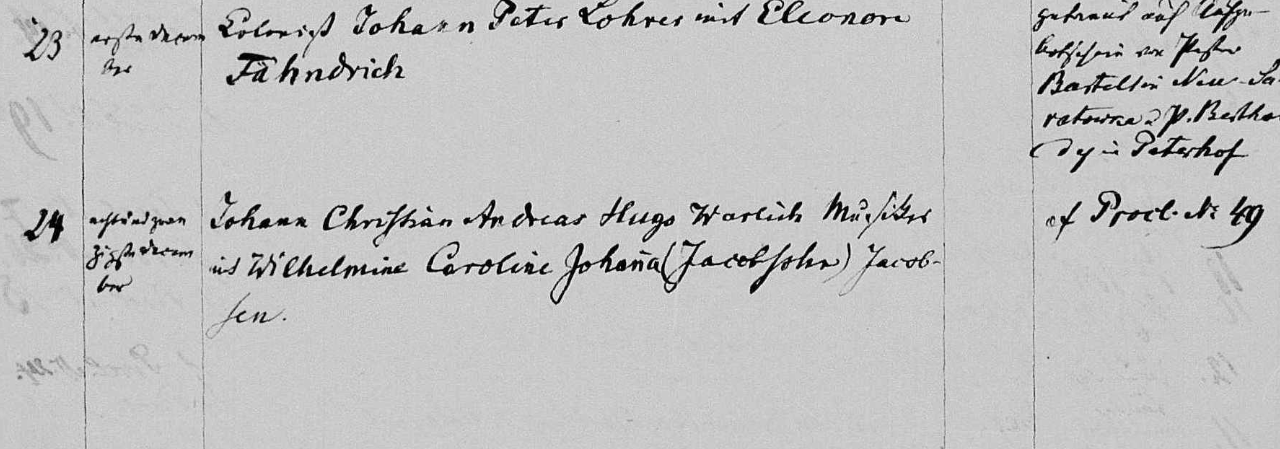 23
erste Decem
ber
Kolonist Johann Peter Lohrer mit Eleonore
Fähndrich
getraut auf Aufge-
botschein von Pastor
Bartels in Neu-Sa-
ratowka u P.
in Peterhof
24
achtundzwan
zigste Decem
ber
Johann Christian Andreas Hugo Warlich Musiker
mit Wilhelmine Caroline Johanna (Jacobsohn) Jacob-
sen.
cf Procl. № 49